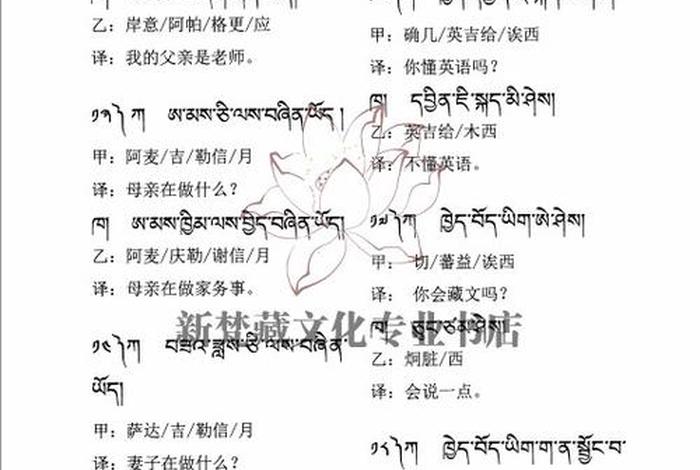 乙：岸意/阿帕/格更/应
译：我的父亲是老师。
༡༣༽ ཀ། ཨ་མས་ཅི་ལས་བཞིན་ཡོད།
甲：阿麦/吉/勒信/月
译：母亲在做什么？
ཁ། ཨ་མས་ཁྱིམ་ལས་བྱེད་བཞིན་ཡོད།
乙：阿麦/庆勒/谢信/月
译：母亲在做家务事。
༡༤༽ ཀ། བཟའ་ཟླས་ཅི་ལས་བཞིན་
ཡོད།
甲：萨达/吉/勒信/月
译：妻子在做什么？
甲：确几/英吉给/诶西
译：你懂英语吗？
ཁ། དབྱིན་ཇི་སྐད་མི་ཤེས།
乙：英吉给/木西
译：不懂英语。
༡༧༽ ཀ། ཁྱེད་བོད་ཡིག་ཨེ་ཤེས།
甲：切/蕃益/诶西
译：你会藏文吗？
ཁ། ཅུང་ཙམ་ཤེས།
乙：炯脏/西
译：会说一点。
ཀ། ཁྱེད་བོད་ཡིག་ག་ན་སྦྱོང་བ་
新梵藏文化专业书店